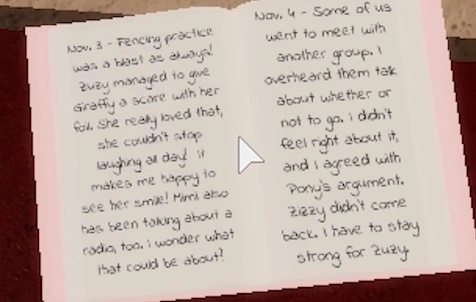 Nov. 3 - Fencing practice
was a blast as always!
Zuzy managed to give
Giraffy a scare with her
foil. She really loved that,
she couldn't stop
laughing all day! it
makes me happy to
see her smile! Mimi also
has been talking about a
radio, too. i wonder what
that could be about?
Nov. 4 - Some of us
went to meet with
another group. I
overheard them talk
about whether or
not to go. i didn't
feel right about it,
and i agreed with
Pony's argument.
Zizzy didn't come
back. I have to stay
strong for Zuzy.